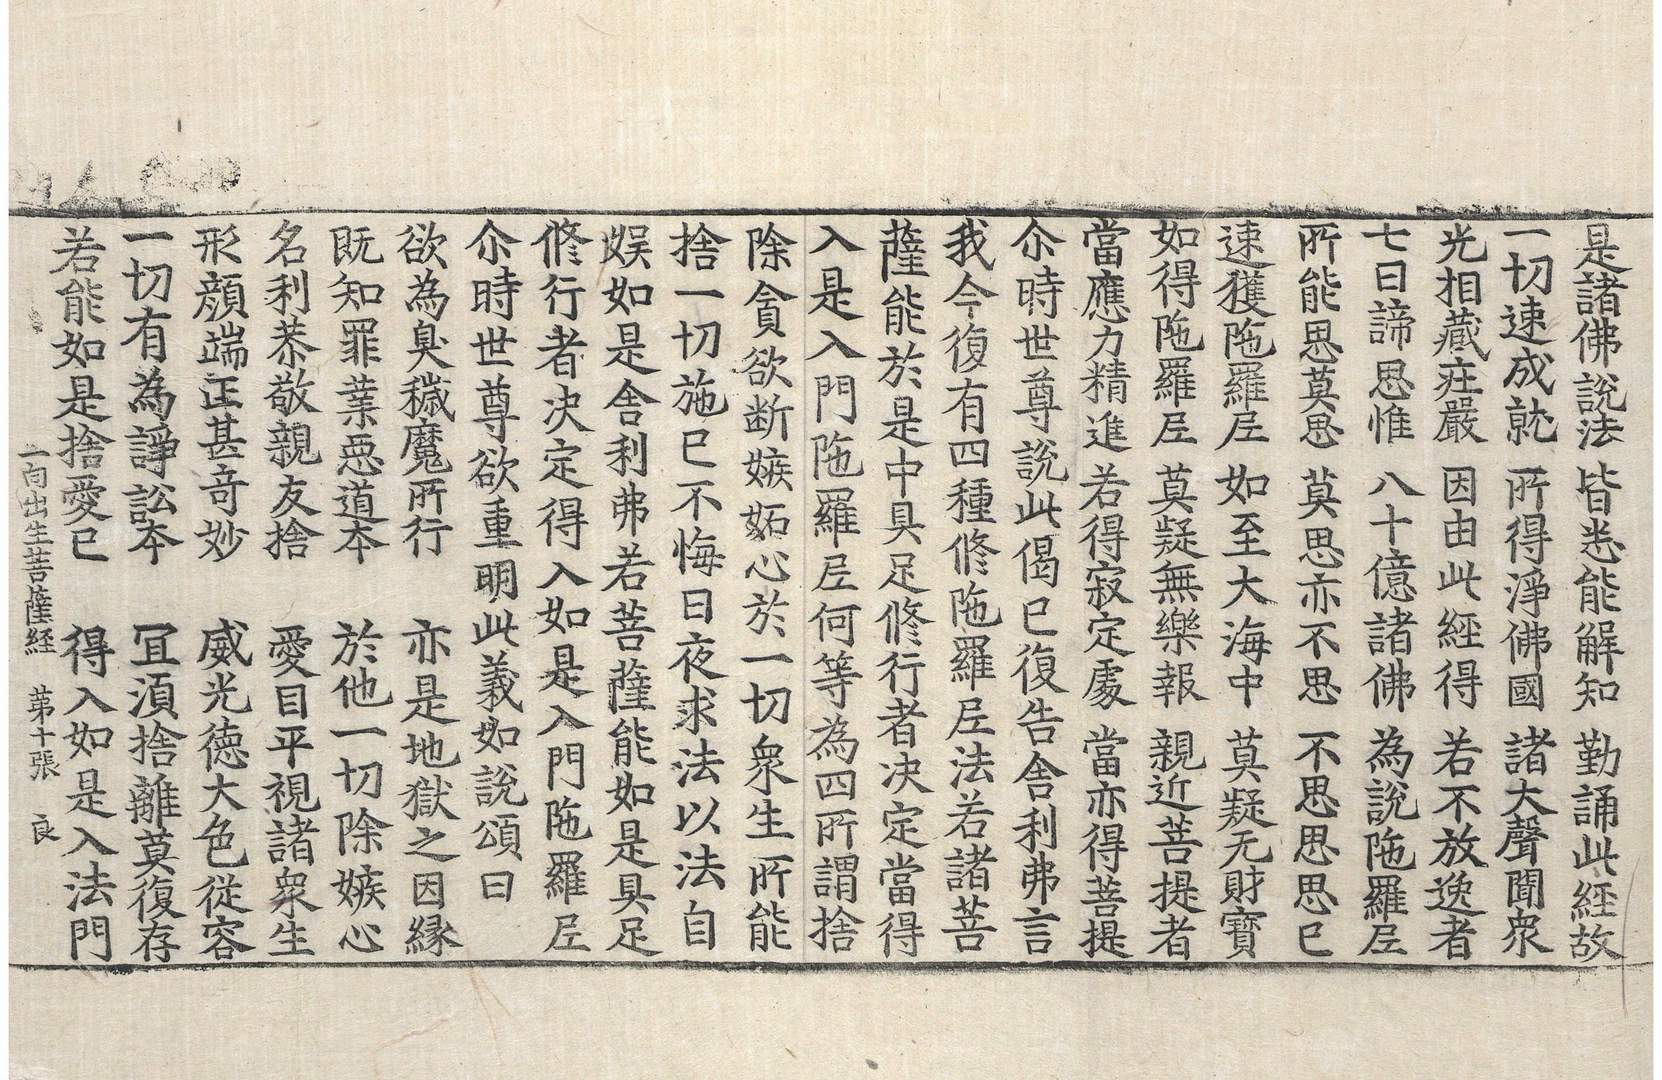 是諸佛說法　皆悉能解知　勤誦此經故
一切速成就　所得淨佛國　諸大聲聞衆
光相藏莊嚴　因由此經得　若不放逸者
七日諦思惟　八十億諸佛　為說陁羅𡰱
所能思莫思　莫思亦不思　不思思思已
速獲陁羅𡰱　如至大海中　莫疑无財寶
如得陁羅𡰱　莫疑無樂報　親近菩提者
當應力精進　若得寂定處　當亦得菩提
尒時世尊說此偈已復告舍利弗言
我今復有四種修陁羅𡰱法若諸菩
薩能於是中具足修行者决定當得
入是入門陁羅𡰱何等為四所謂捨
除貪欲断嫉妬心於一切衆生所能
捨一切施已不悔日夜求法以法自
娱如是舍利弗若菩薩能如是具足
修行者决定得入如是入門陁羅𡰱
尒時世尊欲重明此義如說頌曰
欲為臭穢魔所行　亦是地獄之因緣
既知罪業惡道本　於他一切除嫉心
名利恭敬親友捨　愛目平視諸衆生
形顏端正甚奇妙　威光德大色從容
一切有為諍訟本　冝湏捨離莫復存
若能如是捨愛已　得入如是入法門
一向出生菩薩經　苐十張　良